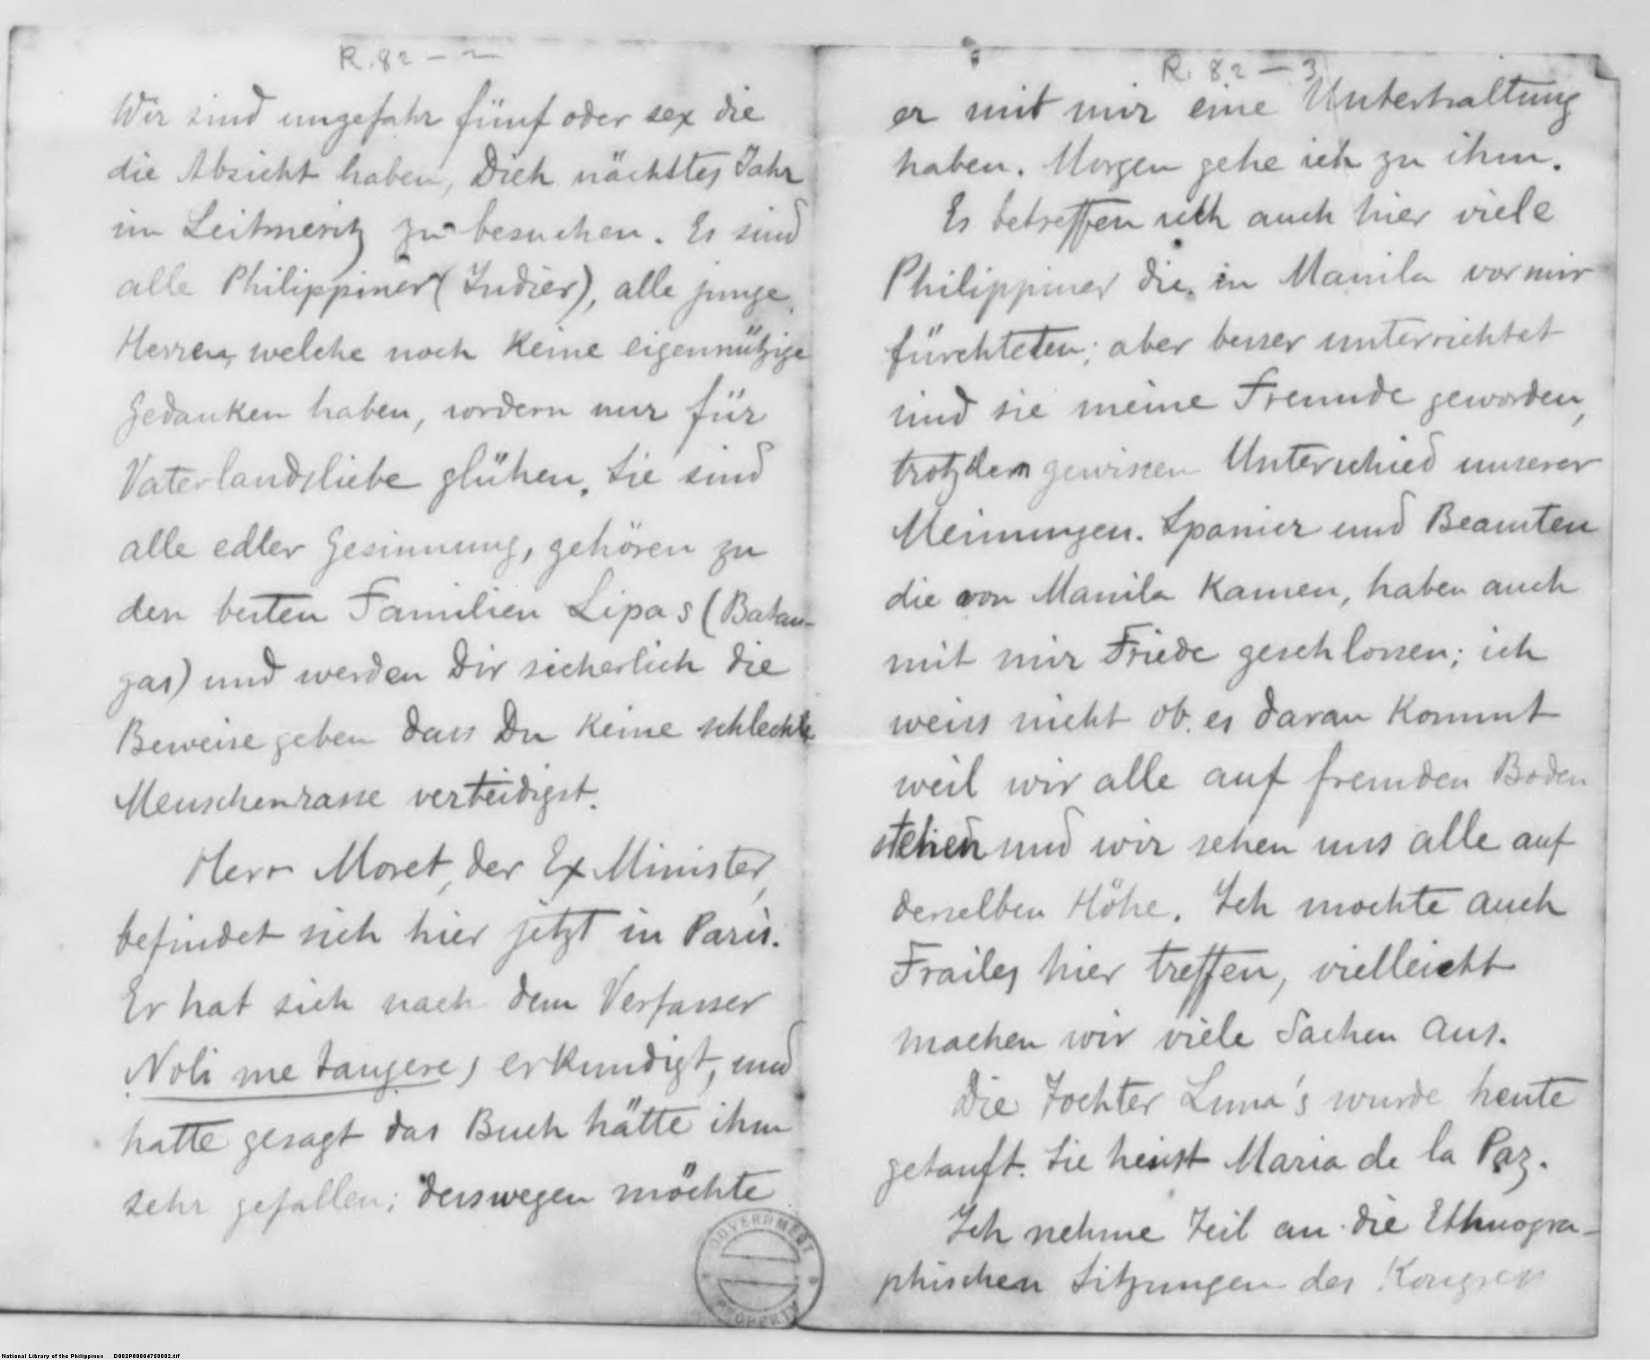 R. 82 - 2
Wir sind ungefahr fünf oder sex die
die Absicht haben, Dich nächstes Jahr
im Leitmeritz zu besuchen. Es sind
alle Philippiner (Indier), alle junge
Herren, welche noch keine eigennützige
Gedanken haben, sondern nur für
Vaterlandsliebe glühen. Sie sind
alle edler Gesinnung, gehören zu
den besten Familien Lipas (Batan-
gas) und werden Dir sicherlich die
Beweise geben dass Du keine schlechte
Menschenrasse verteidigst.
Herr Moret, der Ex Minister,
befindet sich hier jetzt in Paris.
Er hat sich nach dem Verfasser
Noli me tangere, erkundigt, und
hatte gesagt das Buch hätte ihm
sehr gefallen; desswegen möchte
R. 82 - 3
er mit mir eine Unterhaltung
haben. Morgen gehe ich zu ihm.
Es betreffen sich auch hier viele
Philippiner die in Manila vor mir
fürchteten; aber besser unterrichtet
sind sie meine Freunde geworden,
trotzdem gewissen Unterschied unserer
Meinungen. Spanier und Beamten
die von Manila kamen, haben auch
mit mir Friede geschlossen; ich
weiss nicht ob es daran kommt
weil wir alle auf fremden Boden
stehen und wir sehen uns alle auf
derselben Höhe. Ich mochte auch
Frailes hier treffen, vielleicht
machen wir viele Sachen aus.
Die Tochter Luna's wurde heute
getauft. Sie heisst Maria de la Paz.
Ich nehme Teil an die Ethnogra-
phischen Sitzungen des Kongress
GOVERNMENT PROPERTY
National Library of the Philippines